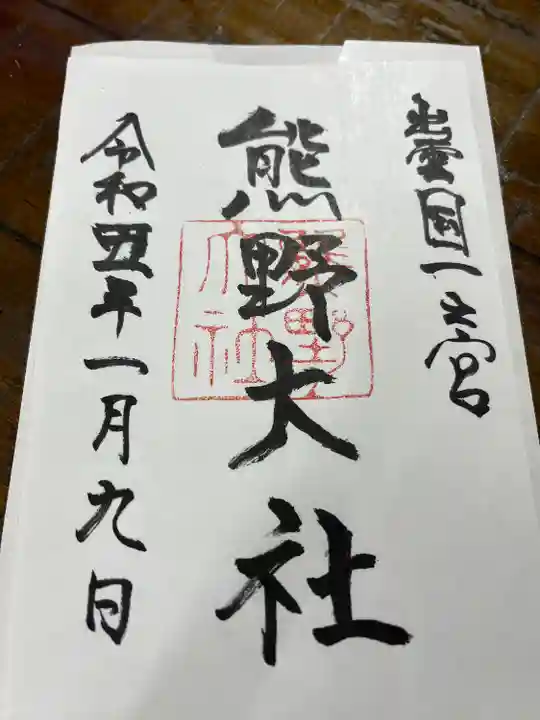 出雲國一之宮
熊野大社
熊野大社
令和五年一月九日